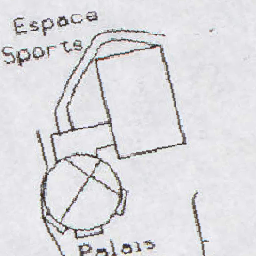 Espace
Sports
Palais